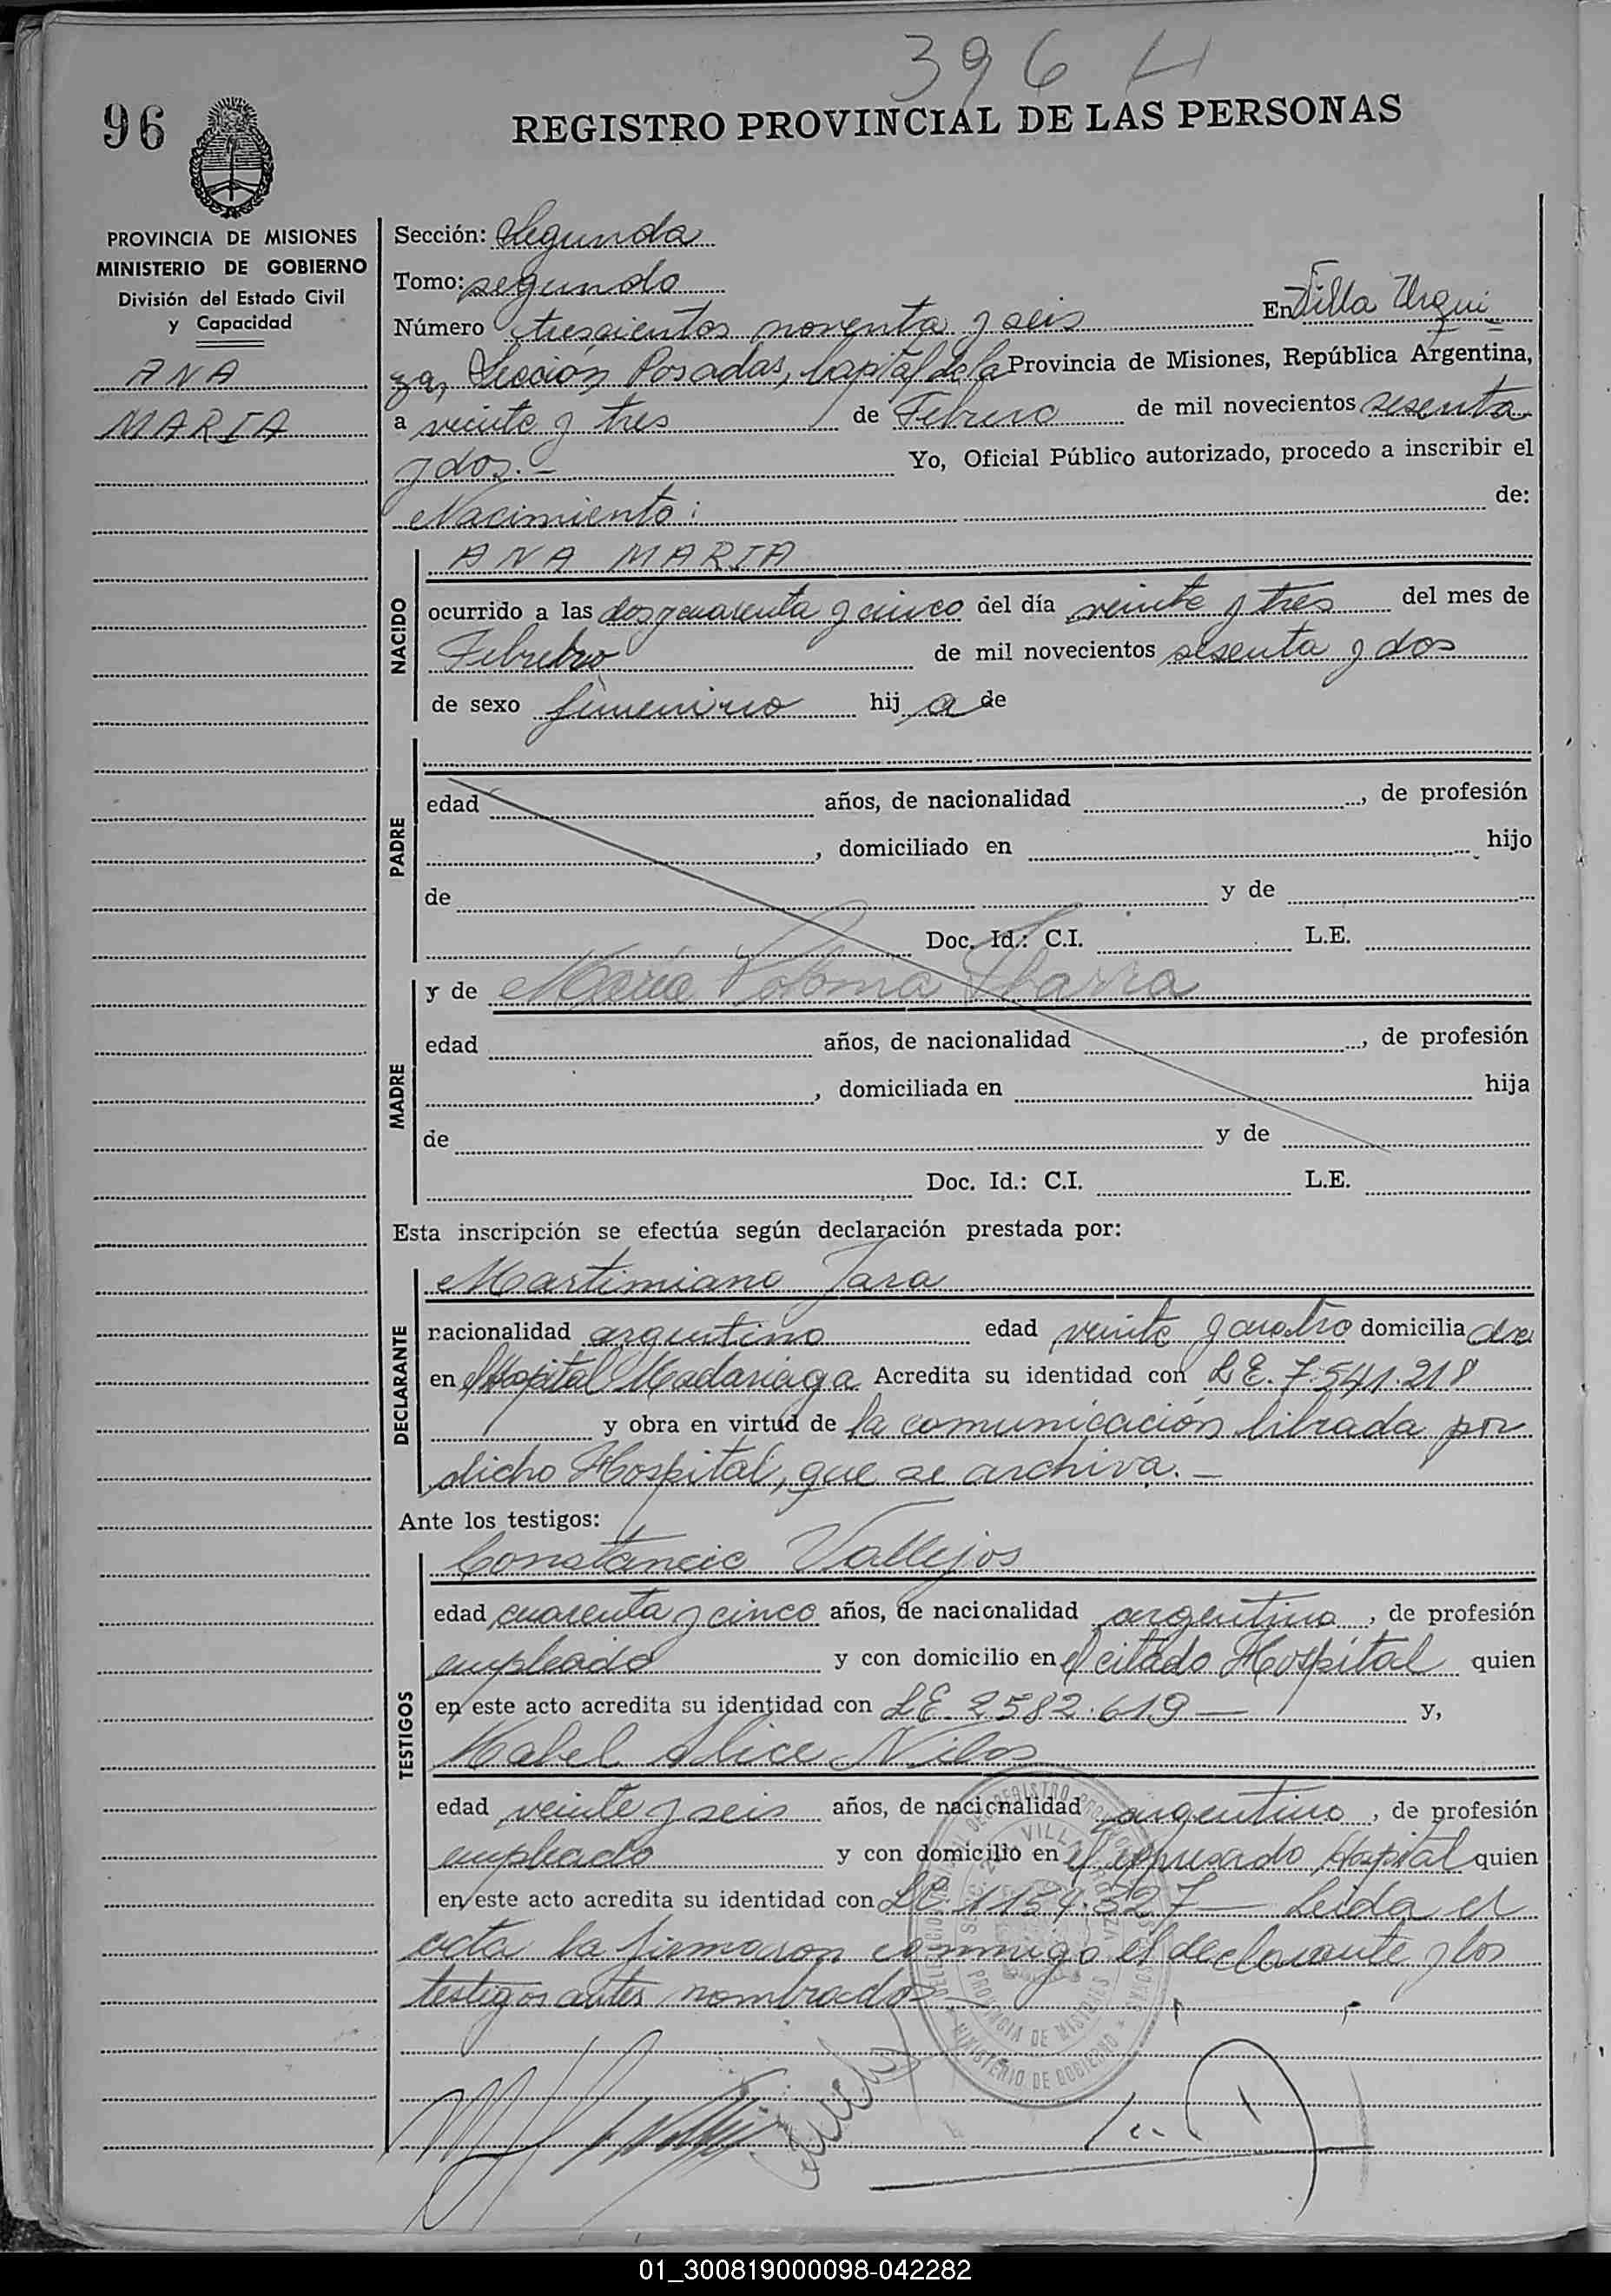 396 H
96
REGISTRO PROVINCIAL DE LAS PERSONAS
PROVINCIA DE MISIONES
MINISTERIO DE GOBIERNO
División del Estado Civil
y Capacidad
ANA
MARIA
Sección: Segunda
Tomo: segundo
Número trescientos noventa y seis En Villa Urqui
za, Sección Posadas, Capital de la Provincia de Misiones, República Argentina,
a veinte y tres de Febrero de mil novecientos sesenta
y dos.- Yo, Oficial Público autorizado, procedo a inscribir el
Nacimiento: de:
NACIDO
ANA MARIA
ocurrido a las dos y cuarenta y cinco del día veinte y tres del mes de
Febrebro de mil novecientos sesenta y dos
de sexo femenino hij a de
PADRE
edad años, de nacionalidad , de profesión
, domiciliado en hijo
de y de
Doc. Id.: C.I. L.E.
MADRE
y de María Paloma Ibarra
edad años, de nacionalidad , de profesión
, domiciliada en hija
de y de
Doc. Id.: C.I. L.E.
Esta inscripción se efectúa según declaración prestada por:
DECLARANTE
Martimiano Jara
nacionalidad argentino edad veinte y cuatro domicilia do
en Hospital Madariaga Acredita su identidad con L.E. 7.541.218
y obra en virtud de la comunicación librada por
dicho Hospital, que se archiva.-
Ante los testigos:
TESTIGOS
Constancio Vallejos
edad cuarenta y cinco años, de nacionalidad argentino, de profesión
empleado y con domicilio en el citado Hospital quien
en este acto acredita su identidad con L.E. 2582.619 — y,
Mabel Alice
edad veinte y seis años, de nacionalidad argentino, de profesión
empleado y con domicilio en el expresado Hospital quien
en este acto acredita su identidad con LC 1154.327 — Leida el
acta la firmaron conmigo el declarante y los
testigos antes nombrados
MINISTERIO DE GOBIERNO
PROVINCIA DE MISIONES
01_300819000098-042282